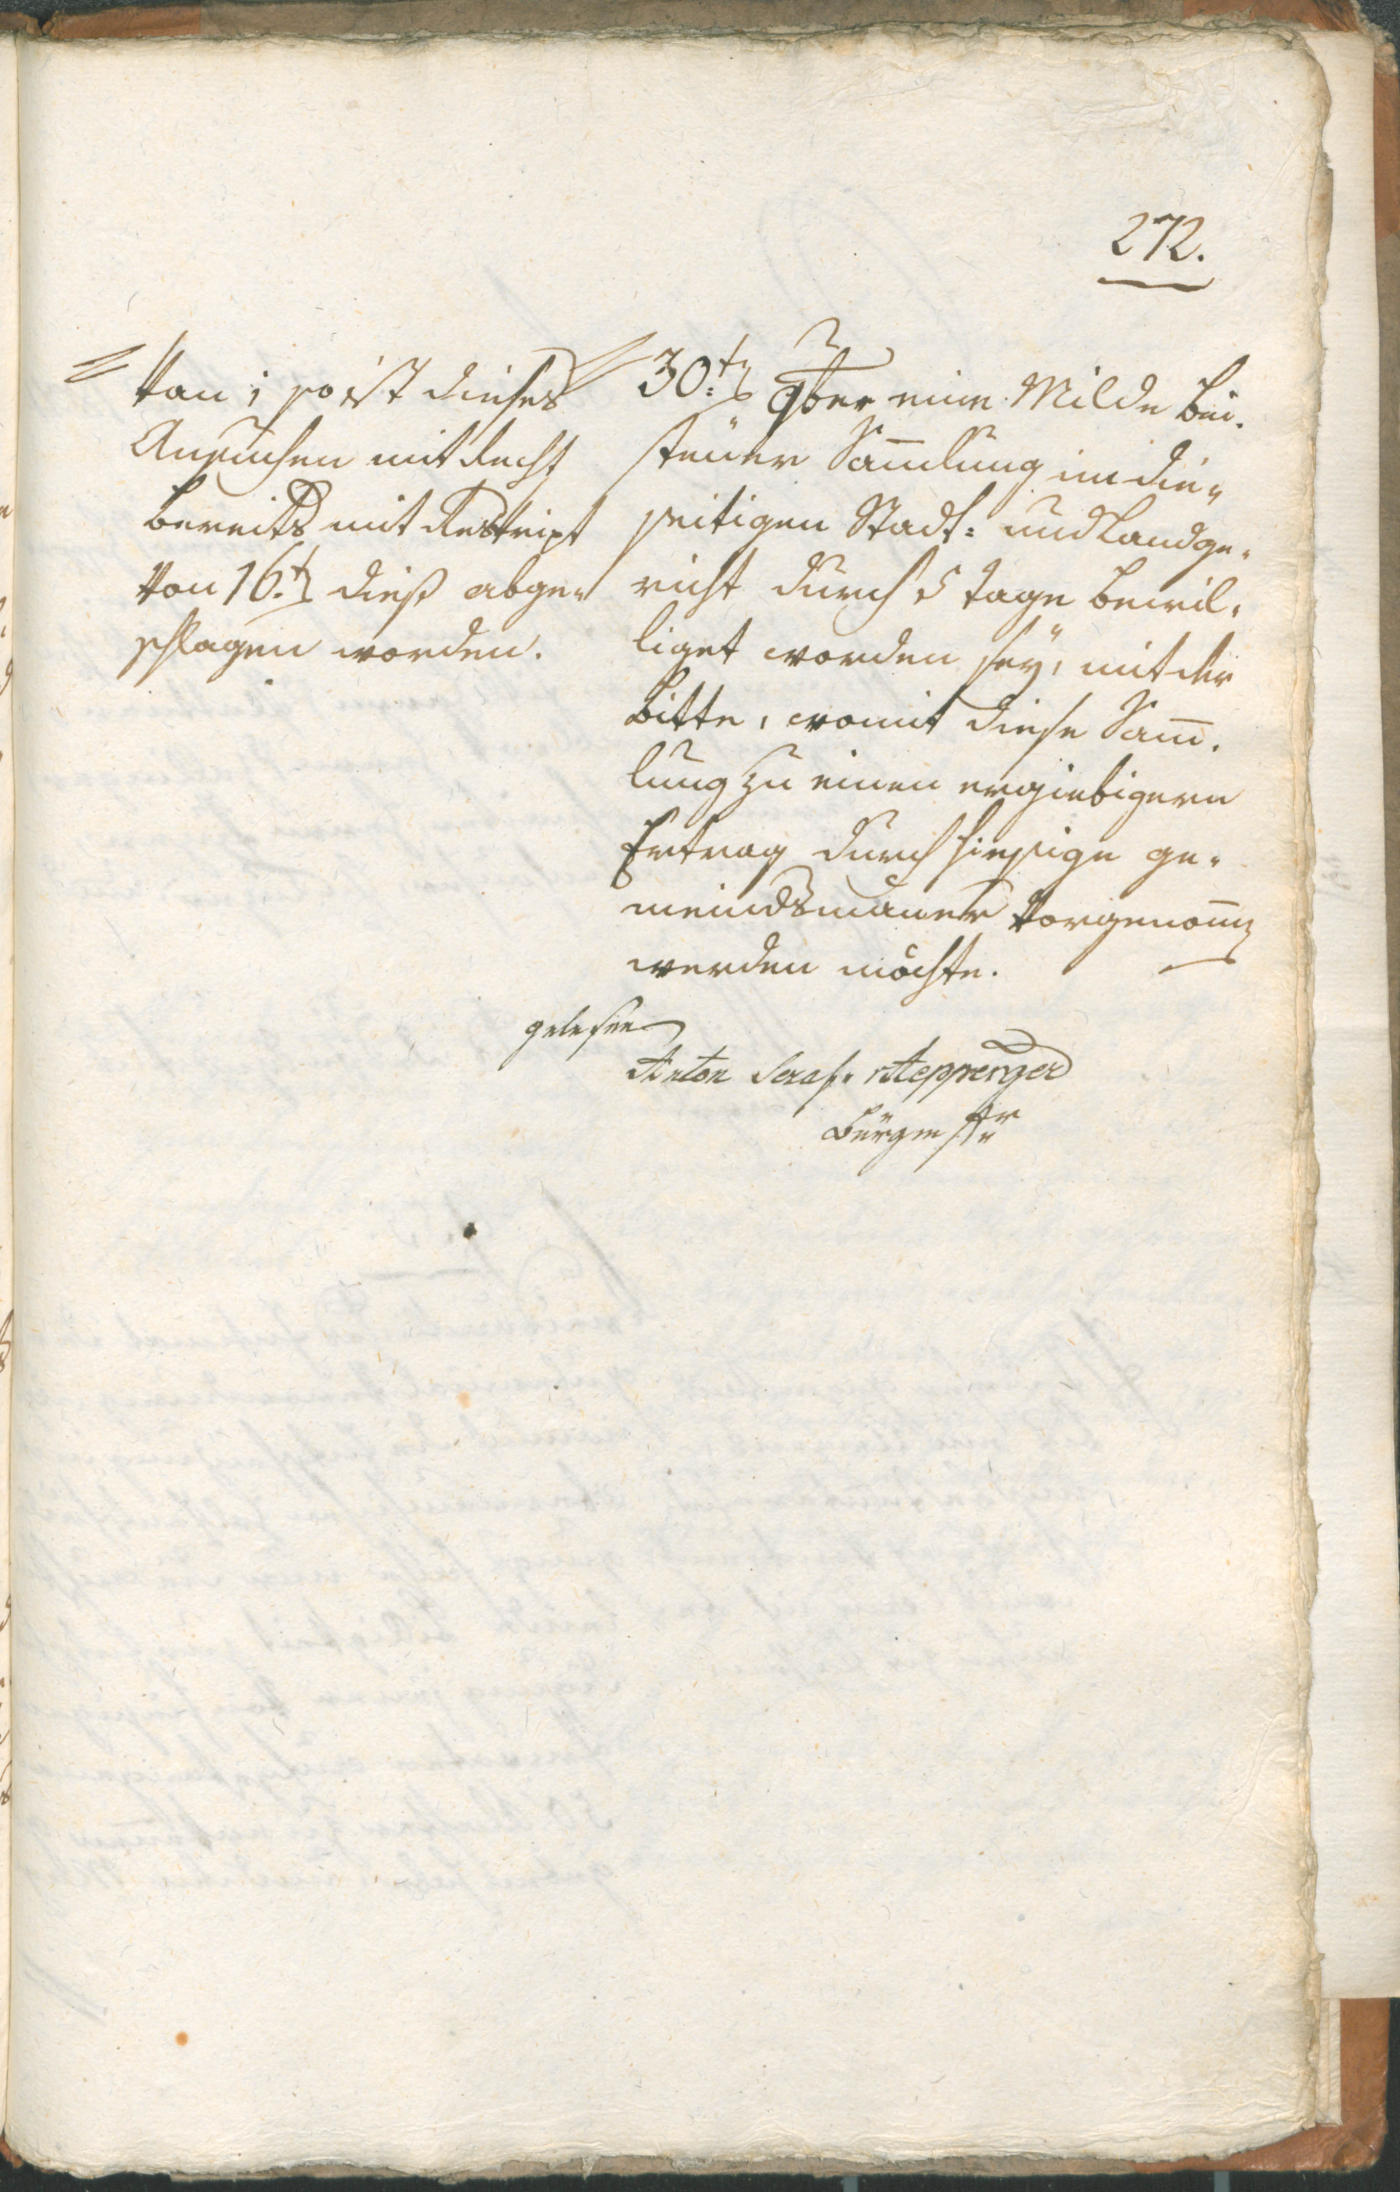 272.
tan; so ist dieses
Ansuchen mit Recht
bereits mit Reskript
von 16.t dieß abge-
schlagen worden.
30:t 9ber eine Milde Bei-
steüer Sam̄lung im die-
seitigen Stadt: und Landge-
richt durch 5 tage bewil-
liget worden seÿ, mit der
bitte, womit diese Sam̄-
lung zu einen ergiebigern
Ertrag durch hiesige ge-
meindsmäner vorgenom̄en
werden möchte.
gelesen
Anton Seraf.
Bürgmstr